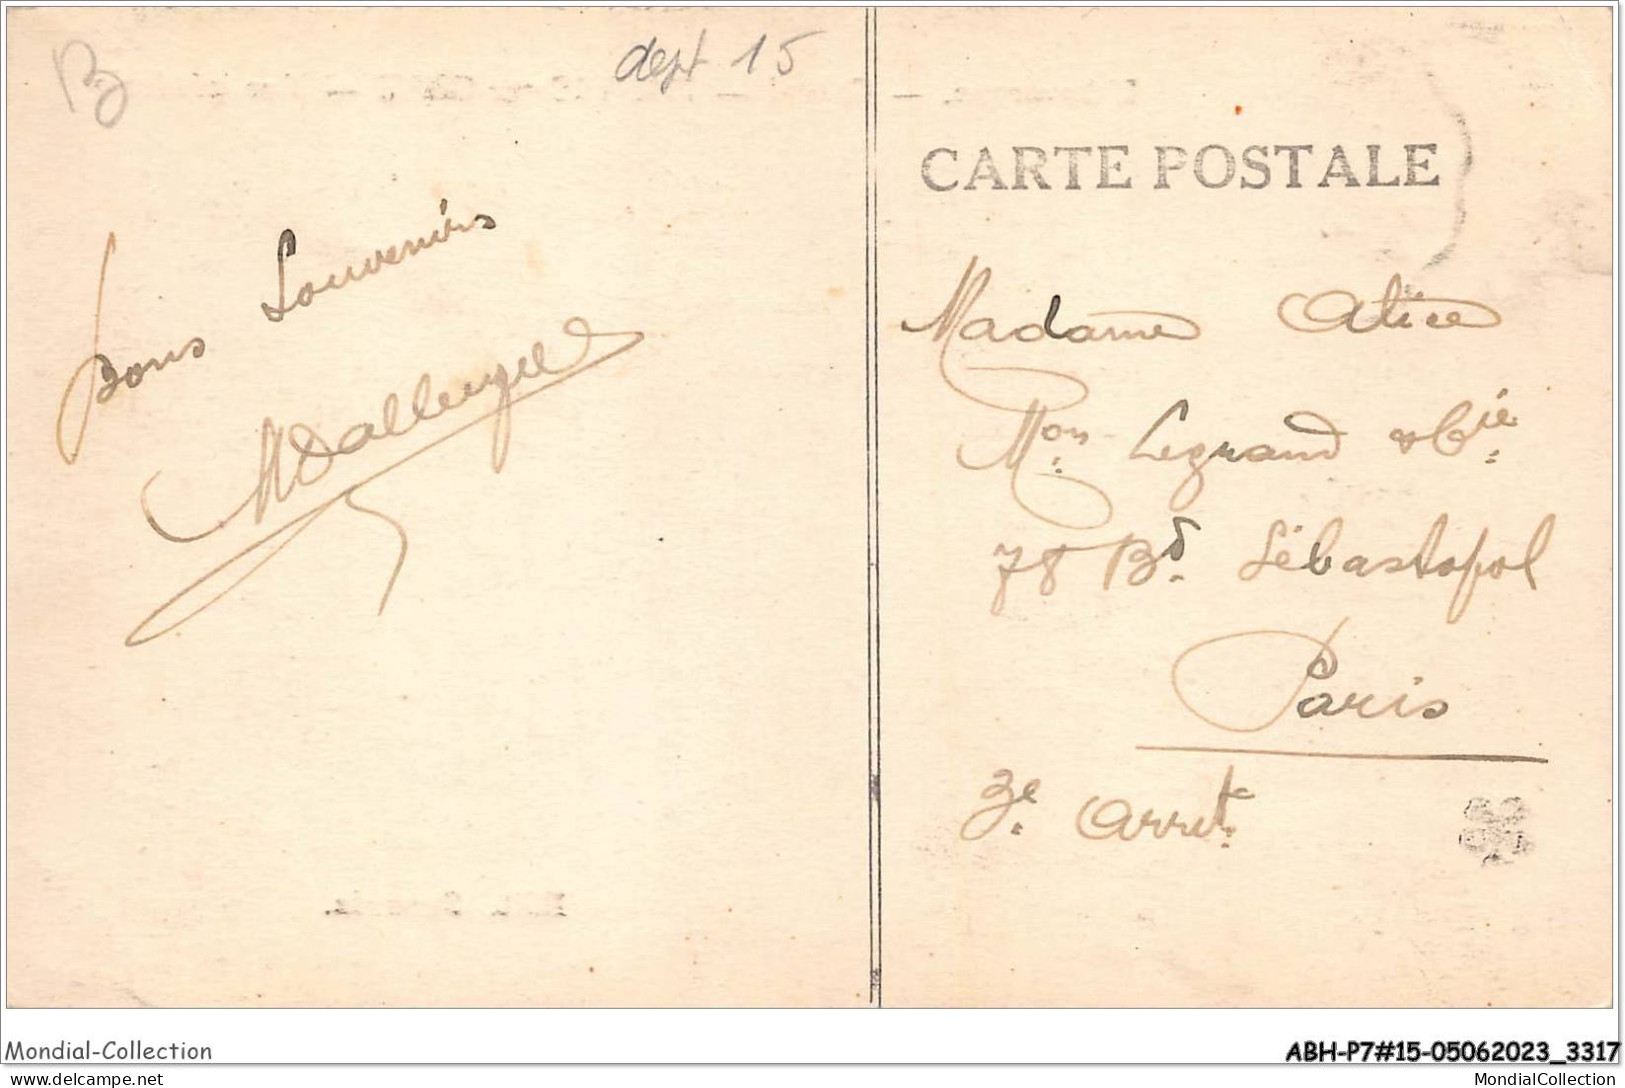 dept 15
Bons Souvenirs
CARTE POSTALE
Madame Alice
Mon Legrand & Cie
78 Bd. Sébastopol
Paris
3e Arrt.
Mondial-Collection
ABH-P7#15-05062023_3317
delcampe.net
MondialCollection